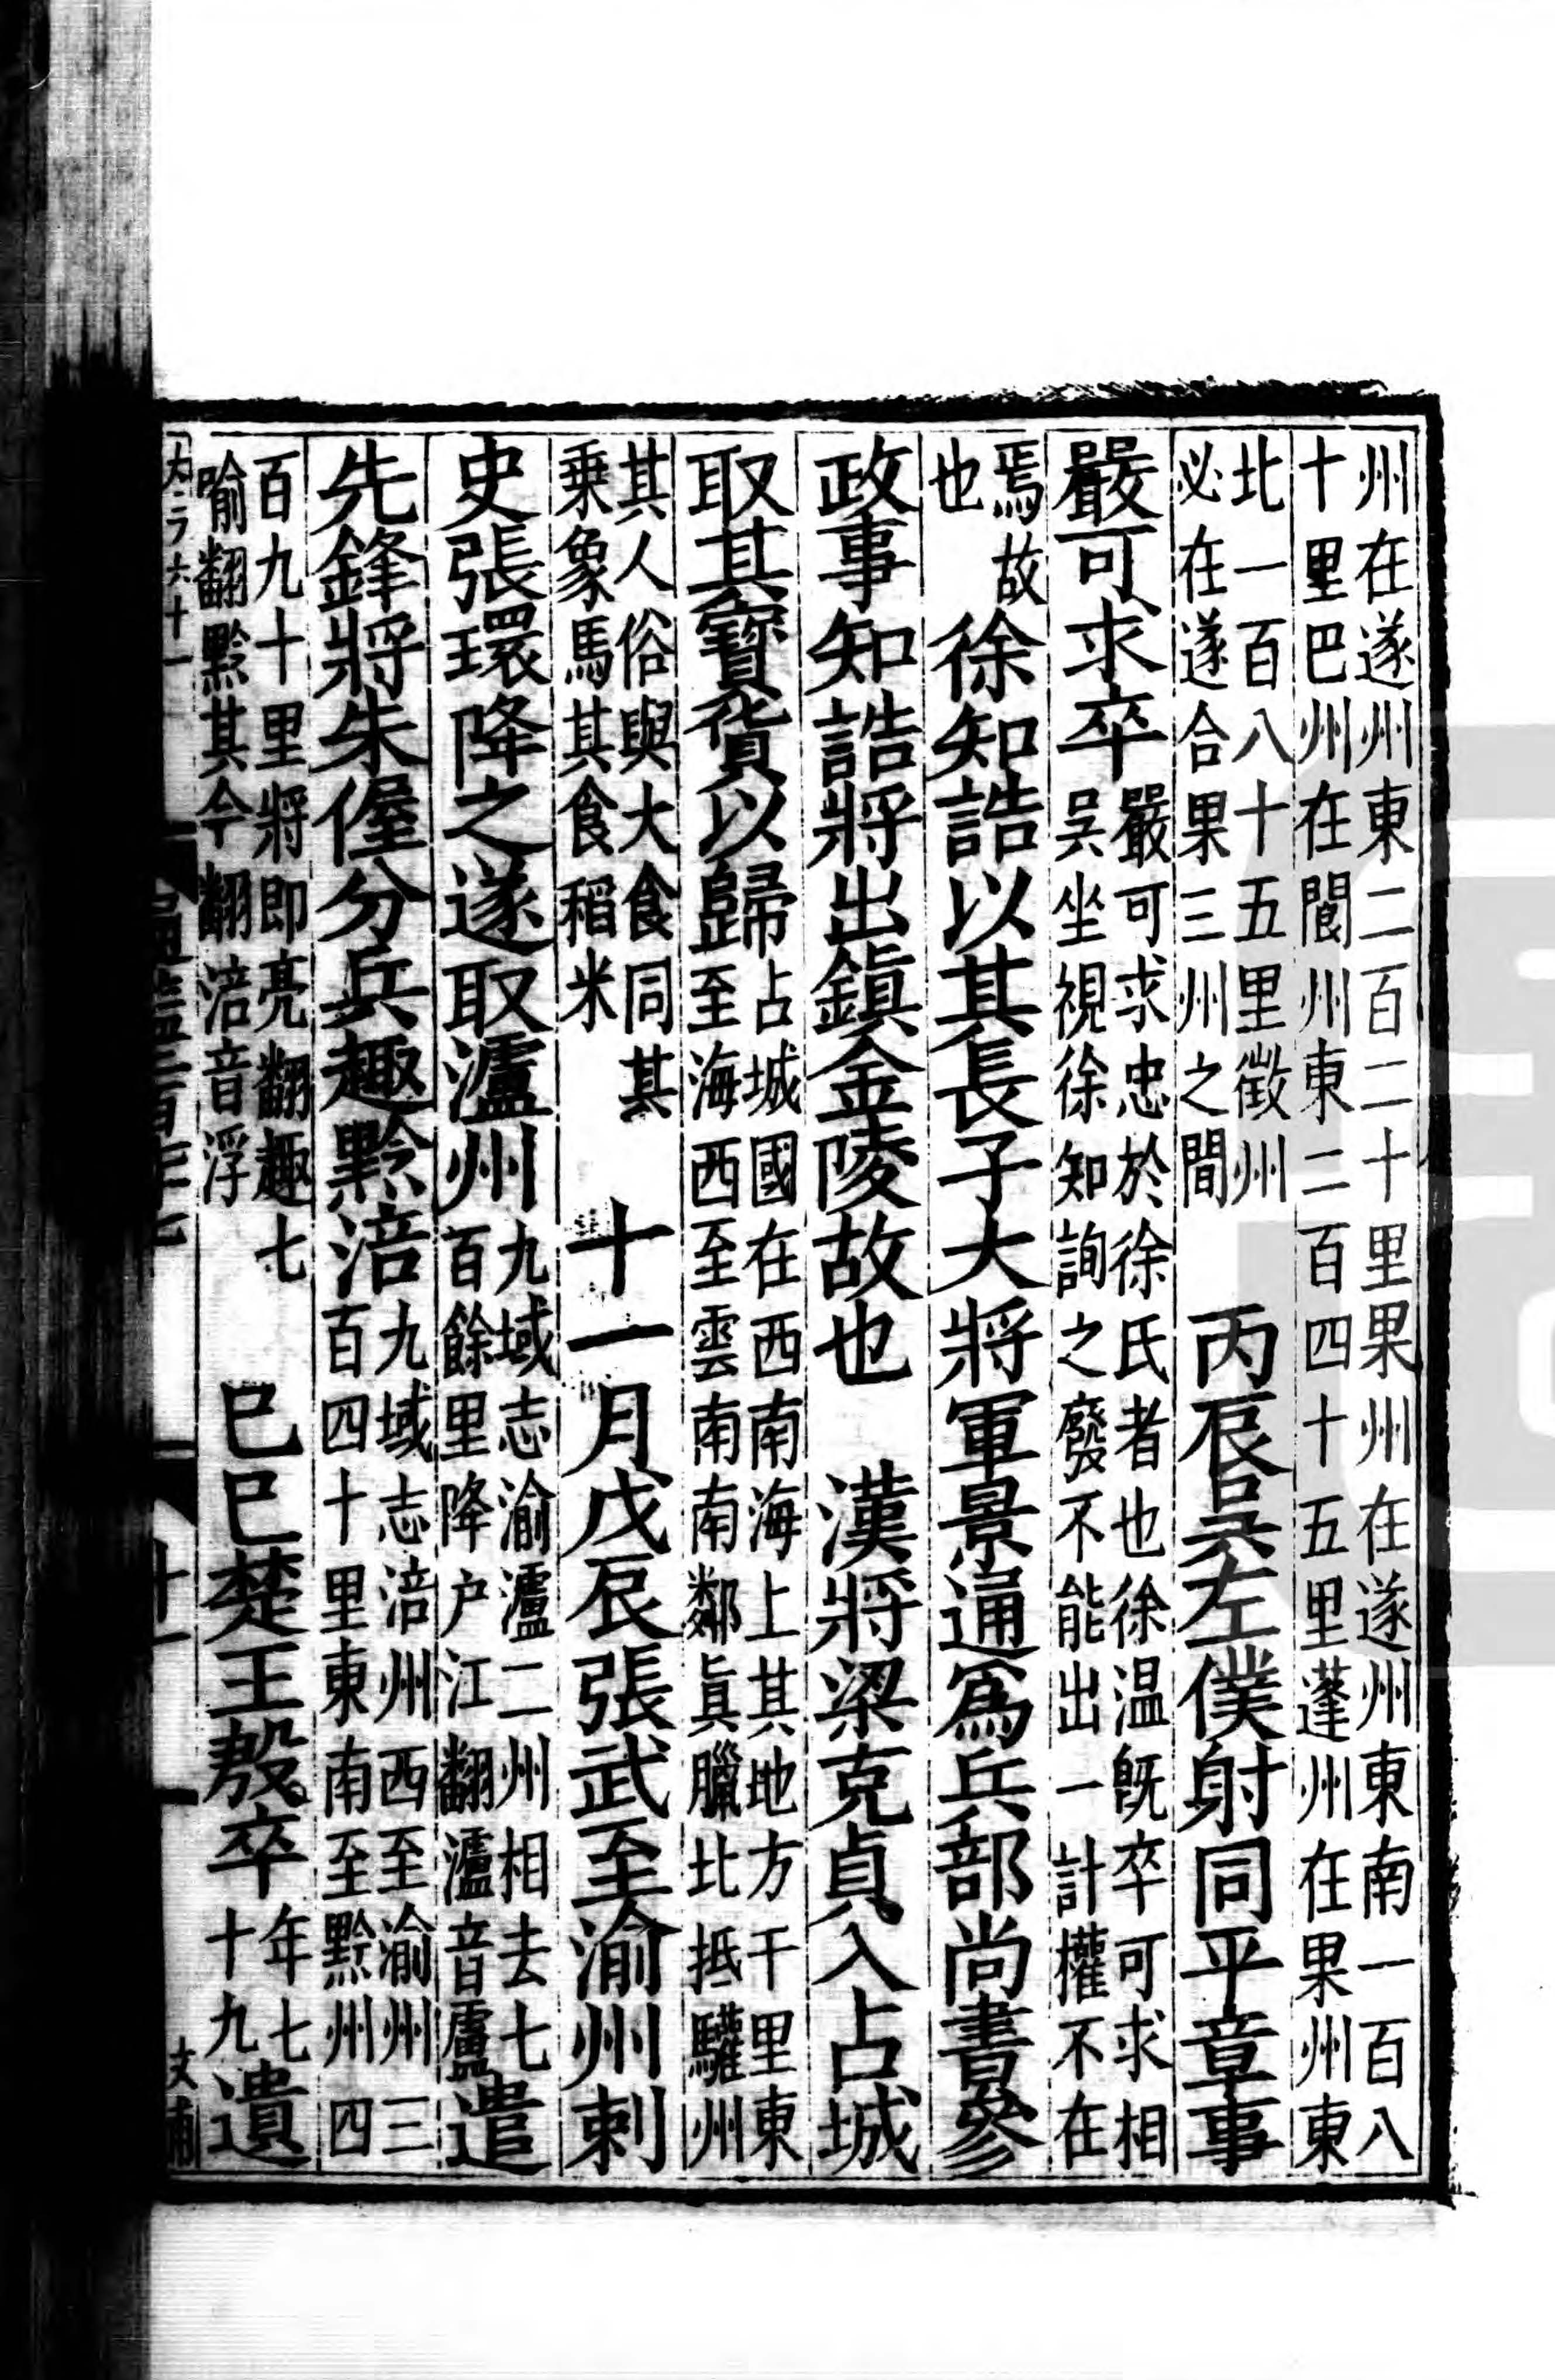 州在遂州東二百二十里果州在遂州東南一百八
十里巴州在閬州東二百四十五里蓬州在果州東
北一百八十五里徵州
必在遂合果三州之間
丙辰吳左僕射同平章事
嚴可求卒
嚴可求忠於徐氏者也徐温旣卒可求相
吳坐視徐知詢之廢不能出一計權不在
焉故
也
徐知誥以其長子大將軍景通爲兵部尚書參
政事知誥將出鎮金陵故也　漢將梁克貞入占城
取其寶貨以歸
占城國在西南海上其地方千里東
至海西至雲南南鄰眞臘北抵驩州
其人俗與大食同其
乗象馬其食稻米
十一月戊辰張武至渝州刺
史張環降之遂取瀘州
九域志渝瀘二州相去七
百餘里降户江翻瀘音盧
遣
先鋒將朱偓分兵趣黔涪
九域志涪州西至渝州三
百四十里東南至黔州四
百九十里將即亮翻趣七
喻翻黔其今翻涪音浮
己巳楚王殷卒
年七
十九
遺